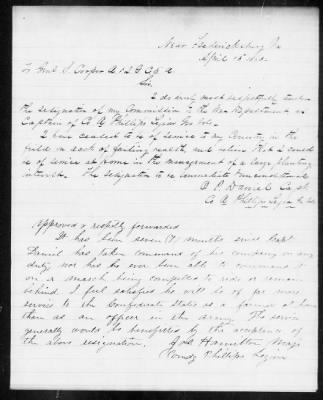 Near Fredericksburg Va
April 15
To Genl S. Cooper A & I G C.S.A.
Sir,
I do very most respectfully tender
the resignation of my Commission to the War Department as
Captain of Co A Phillips Legion Ga Vols.
I have ceased to be of service to my Country in the
field in lack of failing health, and when that I could
be of service at home in the management of a large planting
interest. The resignation to be immediate & unconditional
Daniel Capt
Co A Phillips Legion Ga Vols
Approved & respectfully forwarded
It has been seven (7) months since Capt
Daniel has taken command of his company on any
duty nor has he ever been able to command it
on a march being compelled to ride or remain
behind. I feel satisfied he will be of far more
service to the Confederate States as a farmer at home
than as an officer in the army. The service
generally would be benefitted by the acceptance of
the above resignation. Jos Hamilton Maj
Comdg Phillips Legion